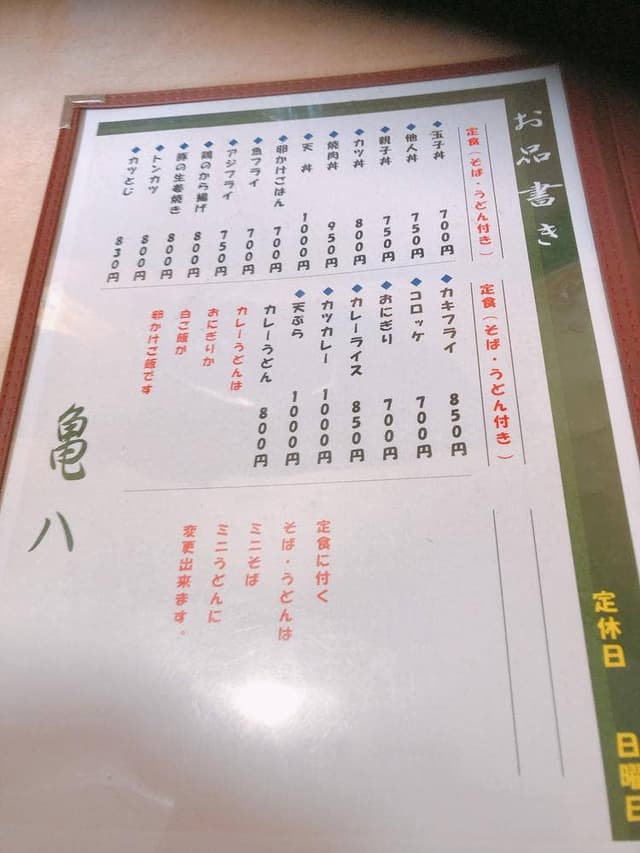 お品書き
定食（そば・うどん付き）
◆玉子丼 700円
◆他人丼 750円
◆親子丼 750円
◆カツ丼 800円
◆焼肉丼 950円
◆天丼 1000円
◆卵かけごはん 700円
◆魚フライ 700円
◆アジフライ 750円
◆鶏のから揚げ 800円
◆豚の生姜焼き 800円
◆トンカツ 800円
◆カツとじ 830円
定食（そば・うどん付き）
◆カキフライ 850円
◆コロッケ 700円
◆おにぎり 700円
◆カレーライス 850円
◆カツカレー 1000円
◆天ぷら 1000円
カレーうどん 800円
カレーうどんは
おにぎりか
白ご飯が
卵かけご飯です
定食に付く
そば・うどんは
ミニそば
ミニうどんに
変更出来ます。
亀八
定休日 日曜日